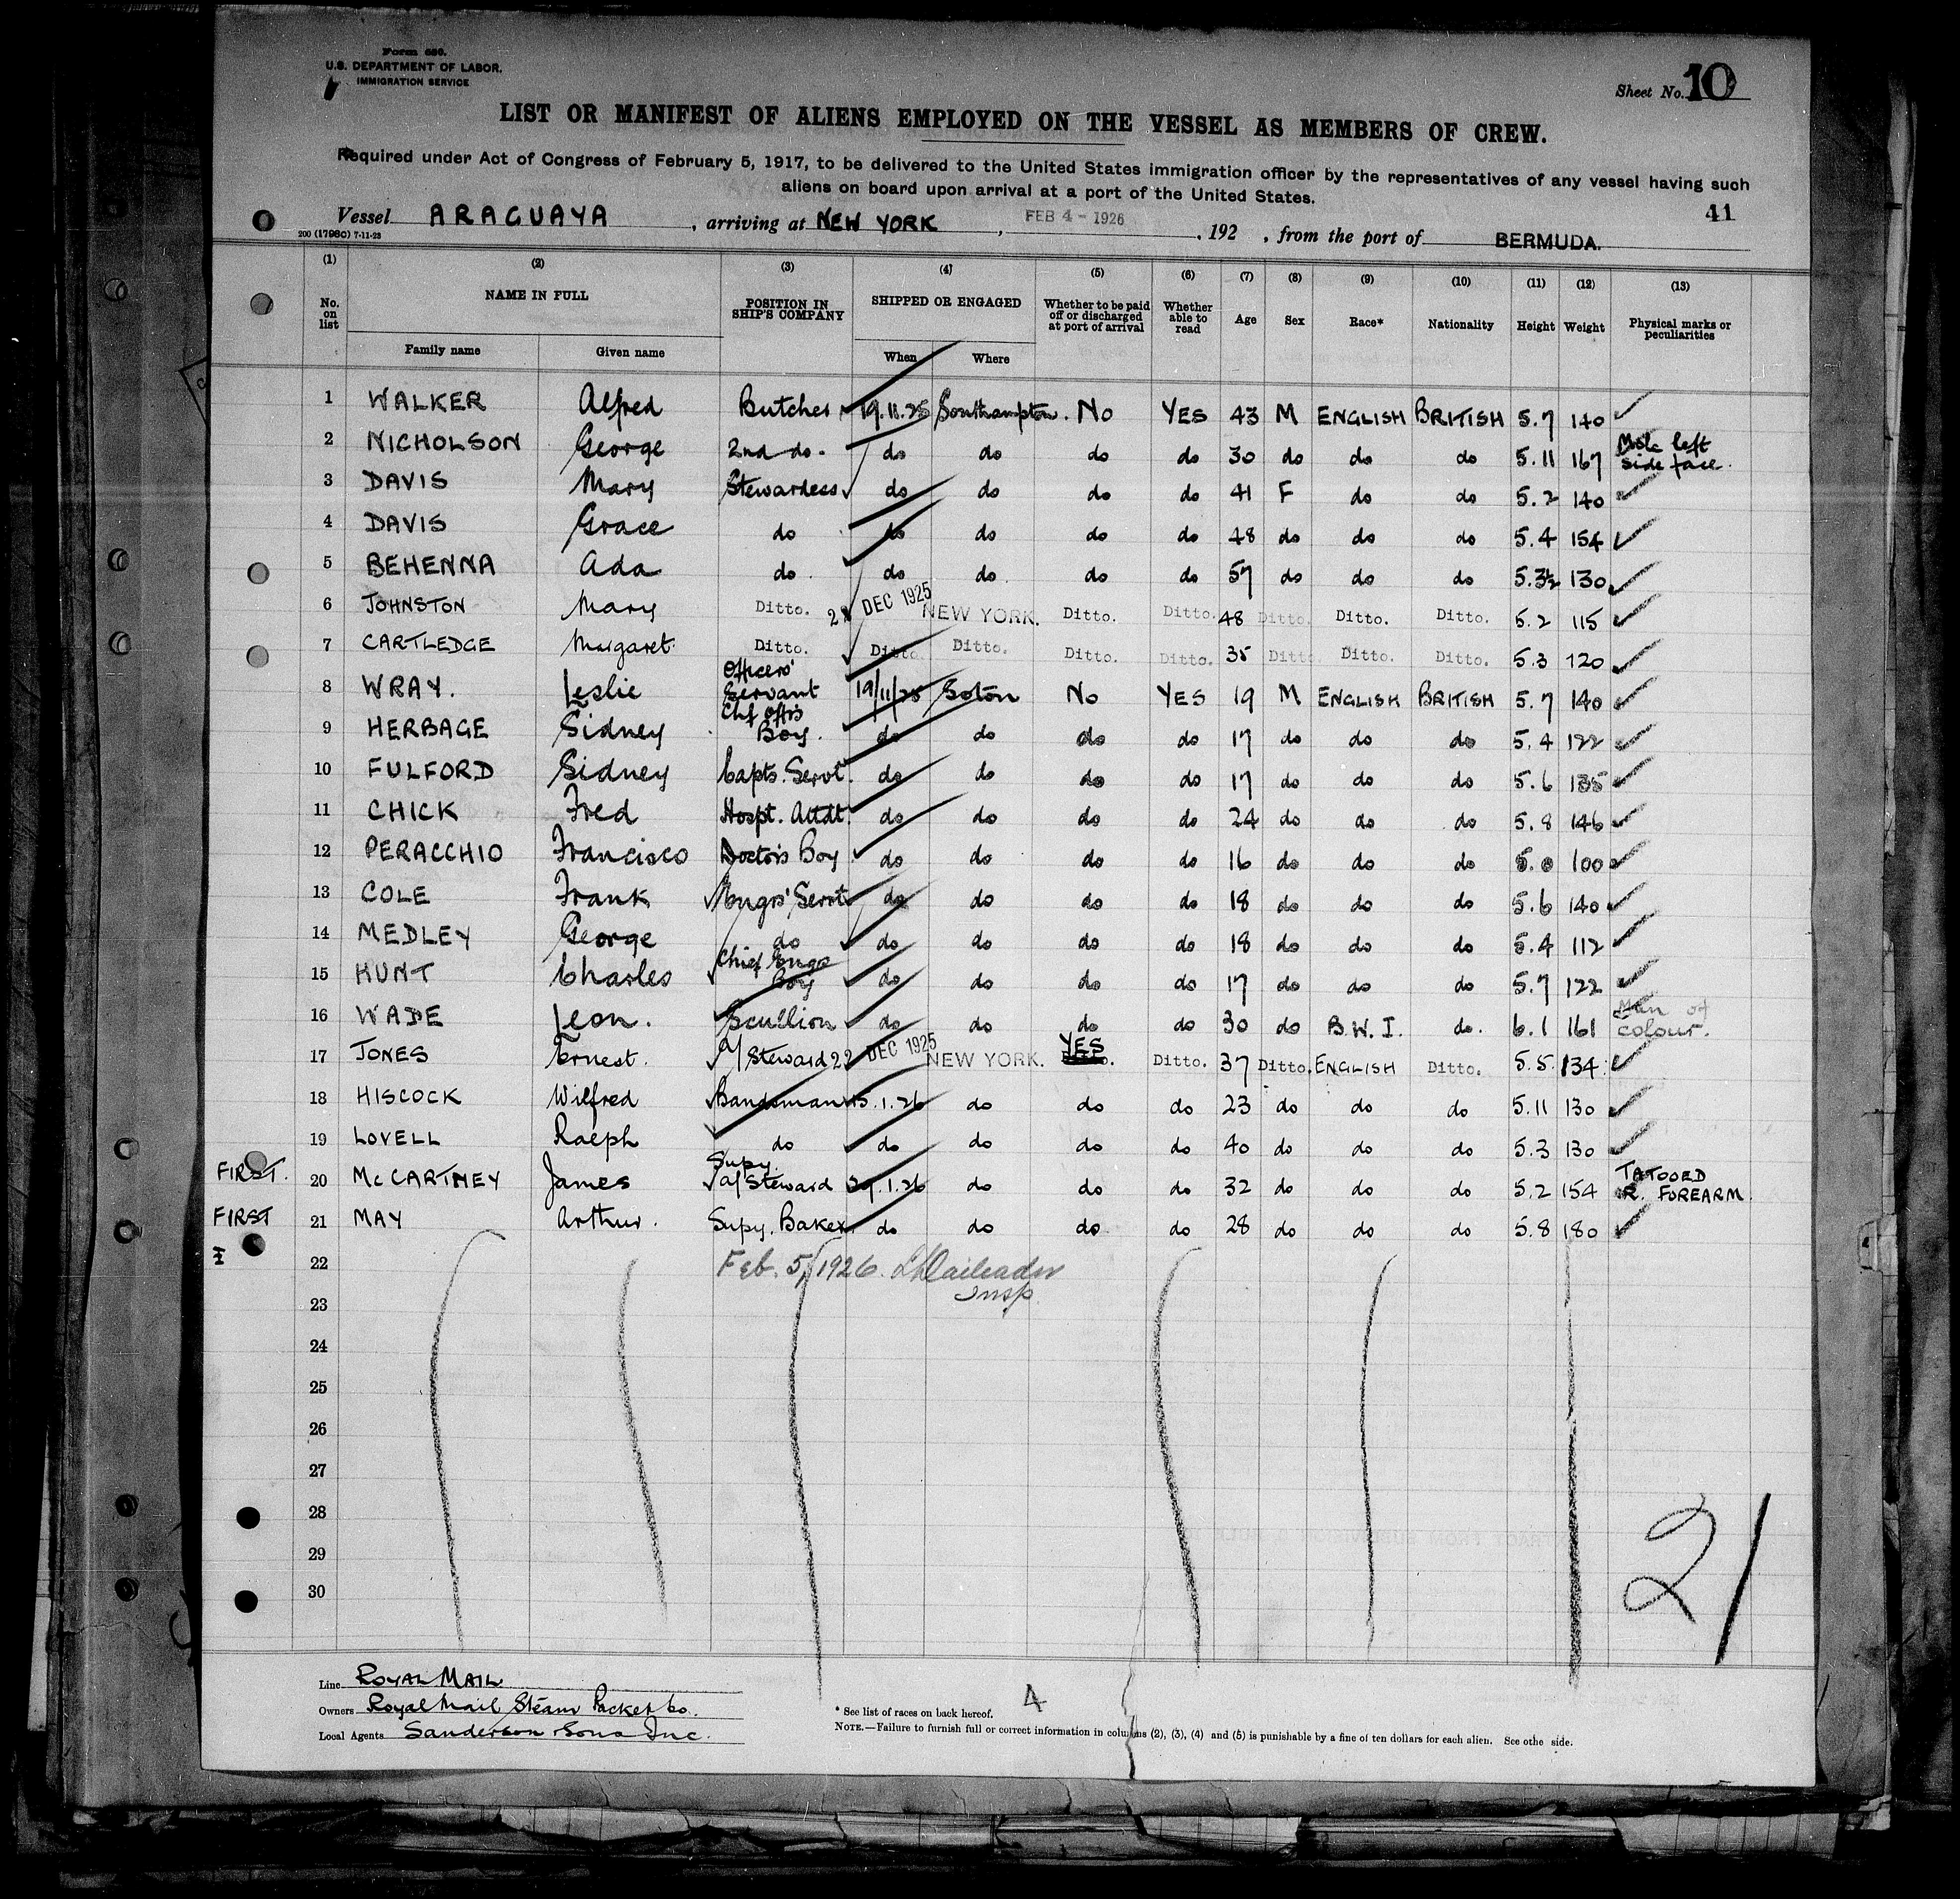 Form 680.
U.S. DEPARTMENT OF LABOR.
IMMIGRATION SERVICE
Sheet No. 10
LIST OR MANIFEST OF ALIENS EMPLOYED ON THE VESSEL AS MEMBERS OF CREW.
Required under Act of Congress of February 5, 1917, to be delivered to the United States immigration officer by the representatives of any vessel having such
aliens on board upon arrival at a port of the United States.
41
Vessel ARAGUAYA, arriving at NEW YORK, FEB 4 - 1926, 192 , from the port of BERMUDA.
200 (1796c) 7-11-23
(1) (2) (3) (4) (5) (6) (7) (8) (9) (10) (11) (12) (13)
No. on list NAME IN FULL Family name Given name POSITION IN SHIP'S COMPANY SHIPPED OR ENGAGED When Where Whether to be paid off or discharged at port of arrival Whether able to read Age Sex Race* Nationality Height Weight Physical marks or peculiarities
1 WALKER Alfred Butcher 19.11.25 Southampton. No YES 43 M ENGLISH BRITISH 5.7 140
2 NICHOLSON George 2nd do. do do do do 30 do do do 5.11 167 Mole left side face.
3 DAVIS Mary Stewardess do do do do 41 F do do 5.2 140
4 DAVIS Grace do do do do do 48 do do do 5.4 154
5 BEHENNA Ada do do do do do 57 do do do 5.3½ 130
6 JOHNSTON Mary Ditto. DEC 1925 NEW YORK. Ditto. Ditto. 48 Ditto. Ditto. Ditto. 5.2 115
7 CARTLEDGE Margaret Ditto. Ditto. Ditto. Ditto. Ditto. 35 Ditto Ditto. Ditto. 5.3 120
8 WRAY. Leslie Officers' Servant 19/11/25 Soton No YES 19 M ENGLISH BRITISH 5.7 140
9 HERBAGE Sidney Chf Offrs Boy. do do do do 17 do do do 5.4 122
10 FULFORD Sidney Capts. Servt. do do do do 17 do do do 5.6 135
11 CHICK Fred Hospt. Attdt. do do do do 24 do do do 5.8 146
12 PERACCHIO Francisco Doctors Boy do do do do 16 do do do 5.0 100
13 COLE Frank Engrs' Servt do do do do 18 do do do 5.6 140
14 MEDLEY George do do do do do 18 do do do 5.4 112
15 HUNT Charles Chief Engrs Boy do do do do 17 do do do 5.7 122
16 WADE Leon. Scullion do do do do 30 do B.W.I. do. 6.1 161 Man of colour.
17 JONES Ernest. a/Steward 22 DEC 1925 NEW YORK. YES Ditto. 37 Ditto. ENGLISH Ditto. 5.5 134
18 HISCOCK Wilfred Bandsman 15.1.26 do do do 23 do do do 5.11 130
19 LOVELL Ralph do do do do do 40 do do do 5.3 130
FIRST. 20 McCARTNEY James Supy. a/Steward 29.1.26 do do do 32 do do do 5.2 154 TATOOED R. FOREARM.
FIRST 21 MAY Arthur. Supy. Baker do do do do 28 do do do 5.8 180
I
22 Feb. 5, 1926.
Insp.
23
24
25
26
27
28
29
30
21
Line ROYAL MAIL
Owners Royal Mail Steam Packet Co.
Local Agents Sanderson & Sons Inc.
4
* See list of races on back hereof.
NOTE.—Failure to furnish full or correct information in columns (2), (3), (4) and (5) is punishable by a fine of ten dollars for each alien. See othe side.